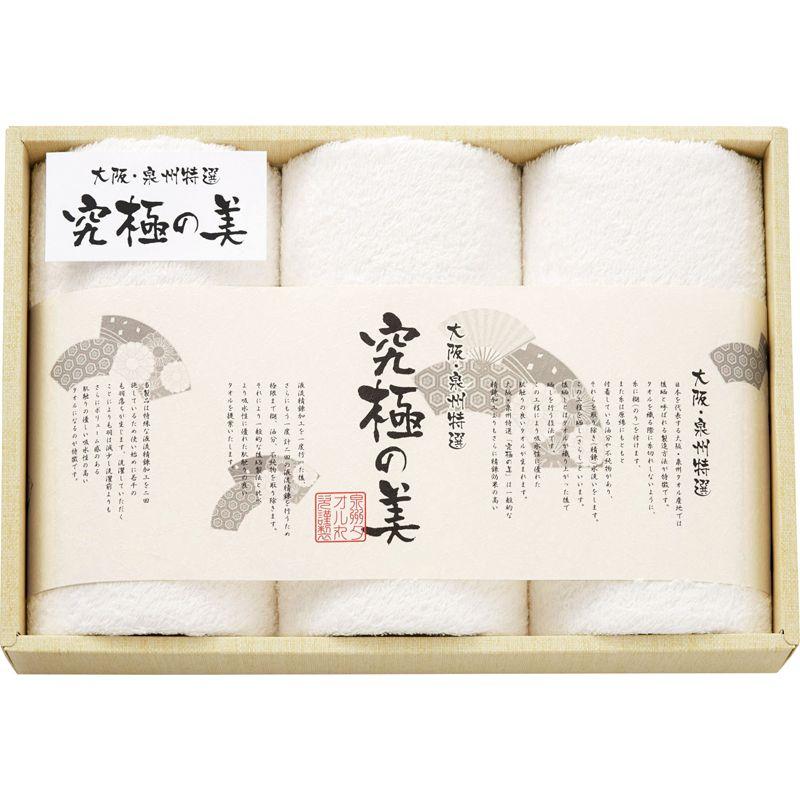 大阪・泉州特選
究極の美
大阪・泉州特選
日本を代表する大阪・泉州タオル産地では
後晒と呼ばれる製造方法が特徴です。
タオルを織る際に糸切れしないように、
糸に糊(のり)を付けます。
また糸は原綿にもともと
付着している油分や不純物があり、
それらを取り除き(精錬)水洗いをします。
この工程を晒し(さらし)といいます。
後晒しとはタオルが織り上がった後で
晒しを行う技法です。
この工程により吸水性に優れた
肌触りの良いタオルが生まれます。
大阪・泉州特選「究極の美」は一般的な
精錬加工よりもさらに精錬効果の高い
大阪・泉州特選
究極の美
泉州タ
オル丸
謹製
液流精錬加工を一度行った後、
さらにもう一度計二回の液流精錬を行うため
極限まで糊、油分、不純物を取り除きます。
それにより一般的な後晒製法と比べ
より吸水性に優れた肌触りの良い
タオルを提案いたします。
当製品は特殊な液流精錬加工を二回
施しているため使い始めに若干の
毛羽落ちが生じます。洗濯していただく
ことにより毛羽は減少し洗濯前よりも
さらにボリューム感のある
肌触りの優しい吸水性の高い
タオルになるのが特徴です。